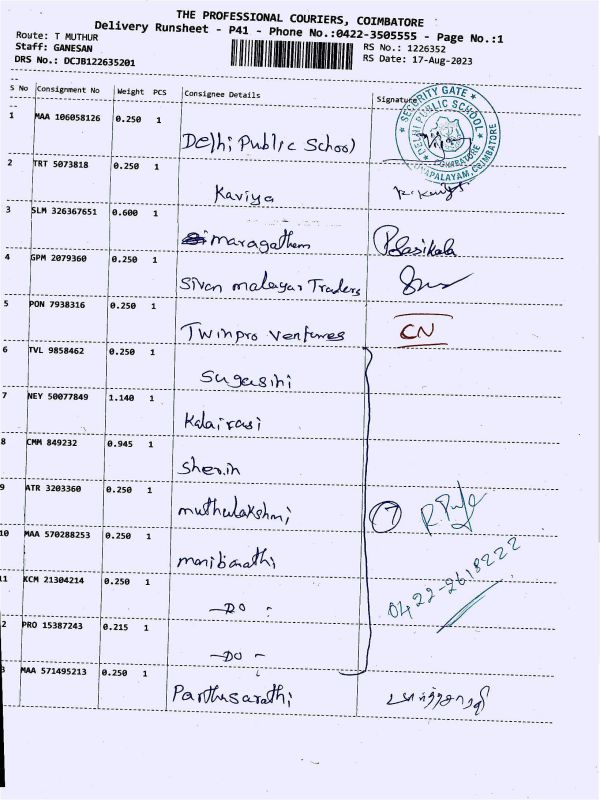 THE PROFESSIONAL COURIERS, COIMBATORE
Delivery Runsheet - P41 - Phone No.:0422-3505555 - Page No.:1
Route: T MUTHUR
RS No.: 1226352
Staff: GANESAN
RS Date: 17-Aug-2023
DRS No.: DCJB122635201
S No Consignment No Weight PCS Consignee Details Signature
SECURITY GATE
DELHI PUBLIC SCHOOL
COIMBATORE
1 MAA 106058126 0.250 1 Delhi Public School
2 TRT 5073818 0.250 1 Kaviya
3 SLM 326367651 0.600 1 maragatham P. Sasikala
4 GPM 2079360 0.250 1 Sivan malayar Traders
5 PON 7938316 0.250 1 Twinpro ventures CN
6 TVL 9858462 0.250 1 Sugasini
7 NEY 50077849 1.140 1 Kalairasi
8 CMM 849232 0.945 1 Sherin
9 ATR 3203360 0.250 1 muthulakshmi 7
10 MAA 570288253 0.250 1 manibarathi
0422-2618222
11 KCM 21304214 0.250 1 -DO-
2 PRO 15387243 0.215 1 -DO-
3 MAA 571495213 0.250 1 Parthasarathi பார்த்தசாரதி